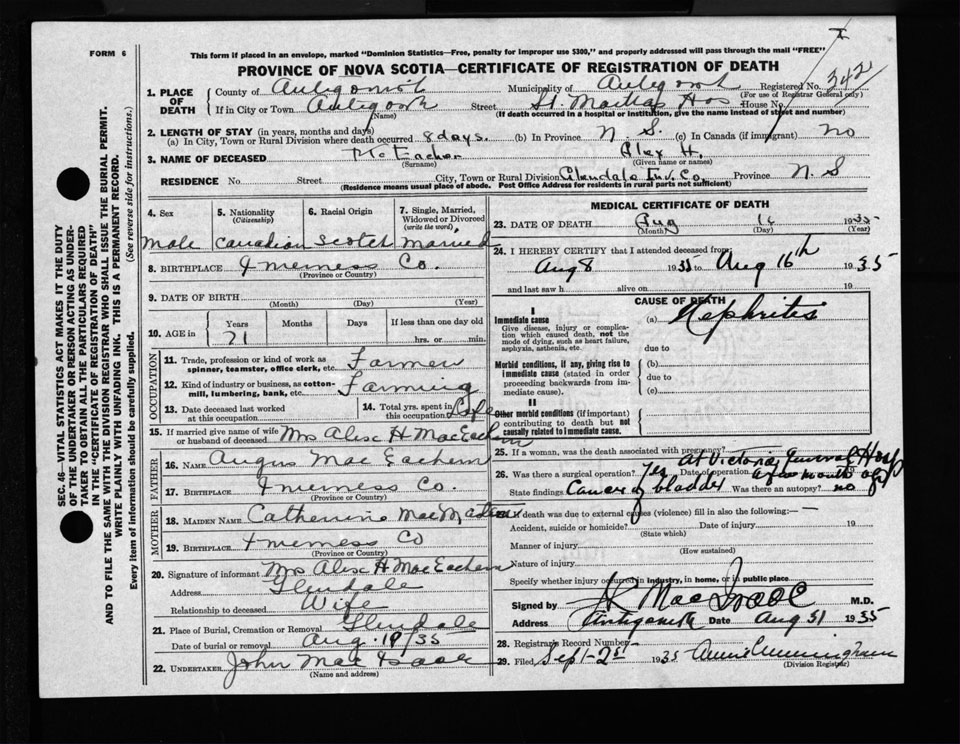 FORM 6
This form if placed in an envelope, marked "Dominion Statistics—Free, penalty for improper use $300," and properly addressed will pass through the mail "FREE"
PROVINCE OF NOVA SCOTIA—CERTIFICATE OF REGISTRATION OF DEATH
1. PLACE OF DEATH
County of Antigonish Municipality of Antigonish Registered No. 342
(For use of Registrar General only)
If in City or Town Antigonish Street St. Marthas Hos House No.
(Name) (If death occurred in a hospital or institution, give the name instead of street and number)
2. LENGTH OF STAY (in years, months and days)
(a) In City, Town or Rural Division where death occurred 8 days. (b) In Province N. S. (c) In Canada (if immigrant) no
3. NAME OF DECEASED McEachen Alex H.
(Surname) (Given name or names)
RESIDENCE No. Street City, Town or Rural Division Glendale Inv. Co. Province N. S
(Residence means usual place of abode. Post Office Address for residents in rural parts not sufficient)
4. Sex 5. Nationality (Citizenship) 6. Racial Origin 7. Single, Married, Widowed or Divorced (write the word)
Male Canadian Scotch Married
8. BIRTHPLACE Inverness Co.
(Province or Country)
9. DATE OF BIRTH
(Month) (Day) (Year)
10. AGE in Years Months Days If less than one day old
71 hrs. or min.
OCCUPATION
11. Trade, profession or kind of work as spinner, teamster, office clerk, etc. Farmer
12. Kind of industry or business, as cotton-mill, lumbering, bank, etc. Farming
13. Date deceased last worked at this occupation 14. Total yrs. spent in this occupation Life
15. If married give name of wife or husband of deceased Mrs Alex H MacEachern
FATHER
16. NAME Angus MacEachern
17. BIRTHPLACE Inverness Co.
(Province or Country)
MOTHER
18. MAIDEN NAME Catherine MacMaster
19. BIRTHPLACE Inverness Co
(Province or Country)
20. Signature of informant Mrs Alex H MacEachern
Address Glendale
Relationship to deceased Wife
21. Place of Burial, Cremation or Removal Glendale
Date of burial or removal Aug. 19/35
22. UNDERTAKER John MacIsaac
(Name and address)
MEDICAL CERTIFICATE OF DEATH
23. DATE OF DEATH Aug 16 1935
(Month) (Day) (Year)
24. I HEREBY CERTIFY that I attended deceased from
Aug 8 1935 to Aug 16th 1935
and last saw h alive on 19
CAUSE OF DEATH
I
Immediate cause (a) Nephritis
Give disease, injury or complication which caused death, not the mode of dying, such as heart failure, asphyxia, asthenia, etc.
due to
Morbid conditions, if any, giving rise to immediate cause (stated in order proceeding backwards from immediate cause).
(b)
due to
(c)
II
Other morbid conditions (if important) contributing to death but not causally related to immediate cause.
25. If a woman, was the death associated with pregnancy?
26. Was there a surgical operation? Yes At Victoria General Hosp
State findings Cancer of bladder Was there an autopsy? no
If death was due to external causes (violence) fill in also the following:—
Accident, suicide or homicide? Date of injury 19
(State which)
Manner of injury
(How sustained)
Nature of injury
Specify whether injury occurred in industry, in home, or in public place
Signed by MacIsaac M.D.
Address Antigonish Date Aug 31 1935
28. Registrar's Record Number
29. Filed Sept-2nd 1935 Annie Cunningham
(Division Registrar)
SEC. 46—VITAL STATISTICS ACT MAKES IT THE DUTY
OF THE UNDERTAKER OR PERSON ACTING AS UNDER-
TAKER TO OBTAIN ALL THE PARTICULARS REQUIRED
IN THE "CERTIFICATE OF REGISTRATION OF DEATH"
AND TO FILE THE SAME WITH THE DIVISION REGISTRAR WHO SHALL ISSUE THE BURIAL PERMIT.
WRITE PLAINLY WITH UNFADING INK. THIS IS A PERMANENT RECORD.
Every item of information should be carefully supplied. (See reverse side for instructions.)